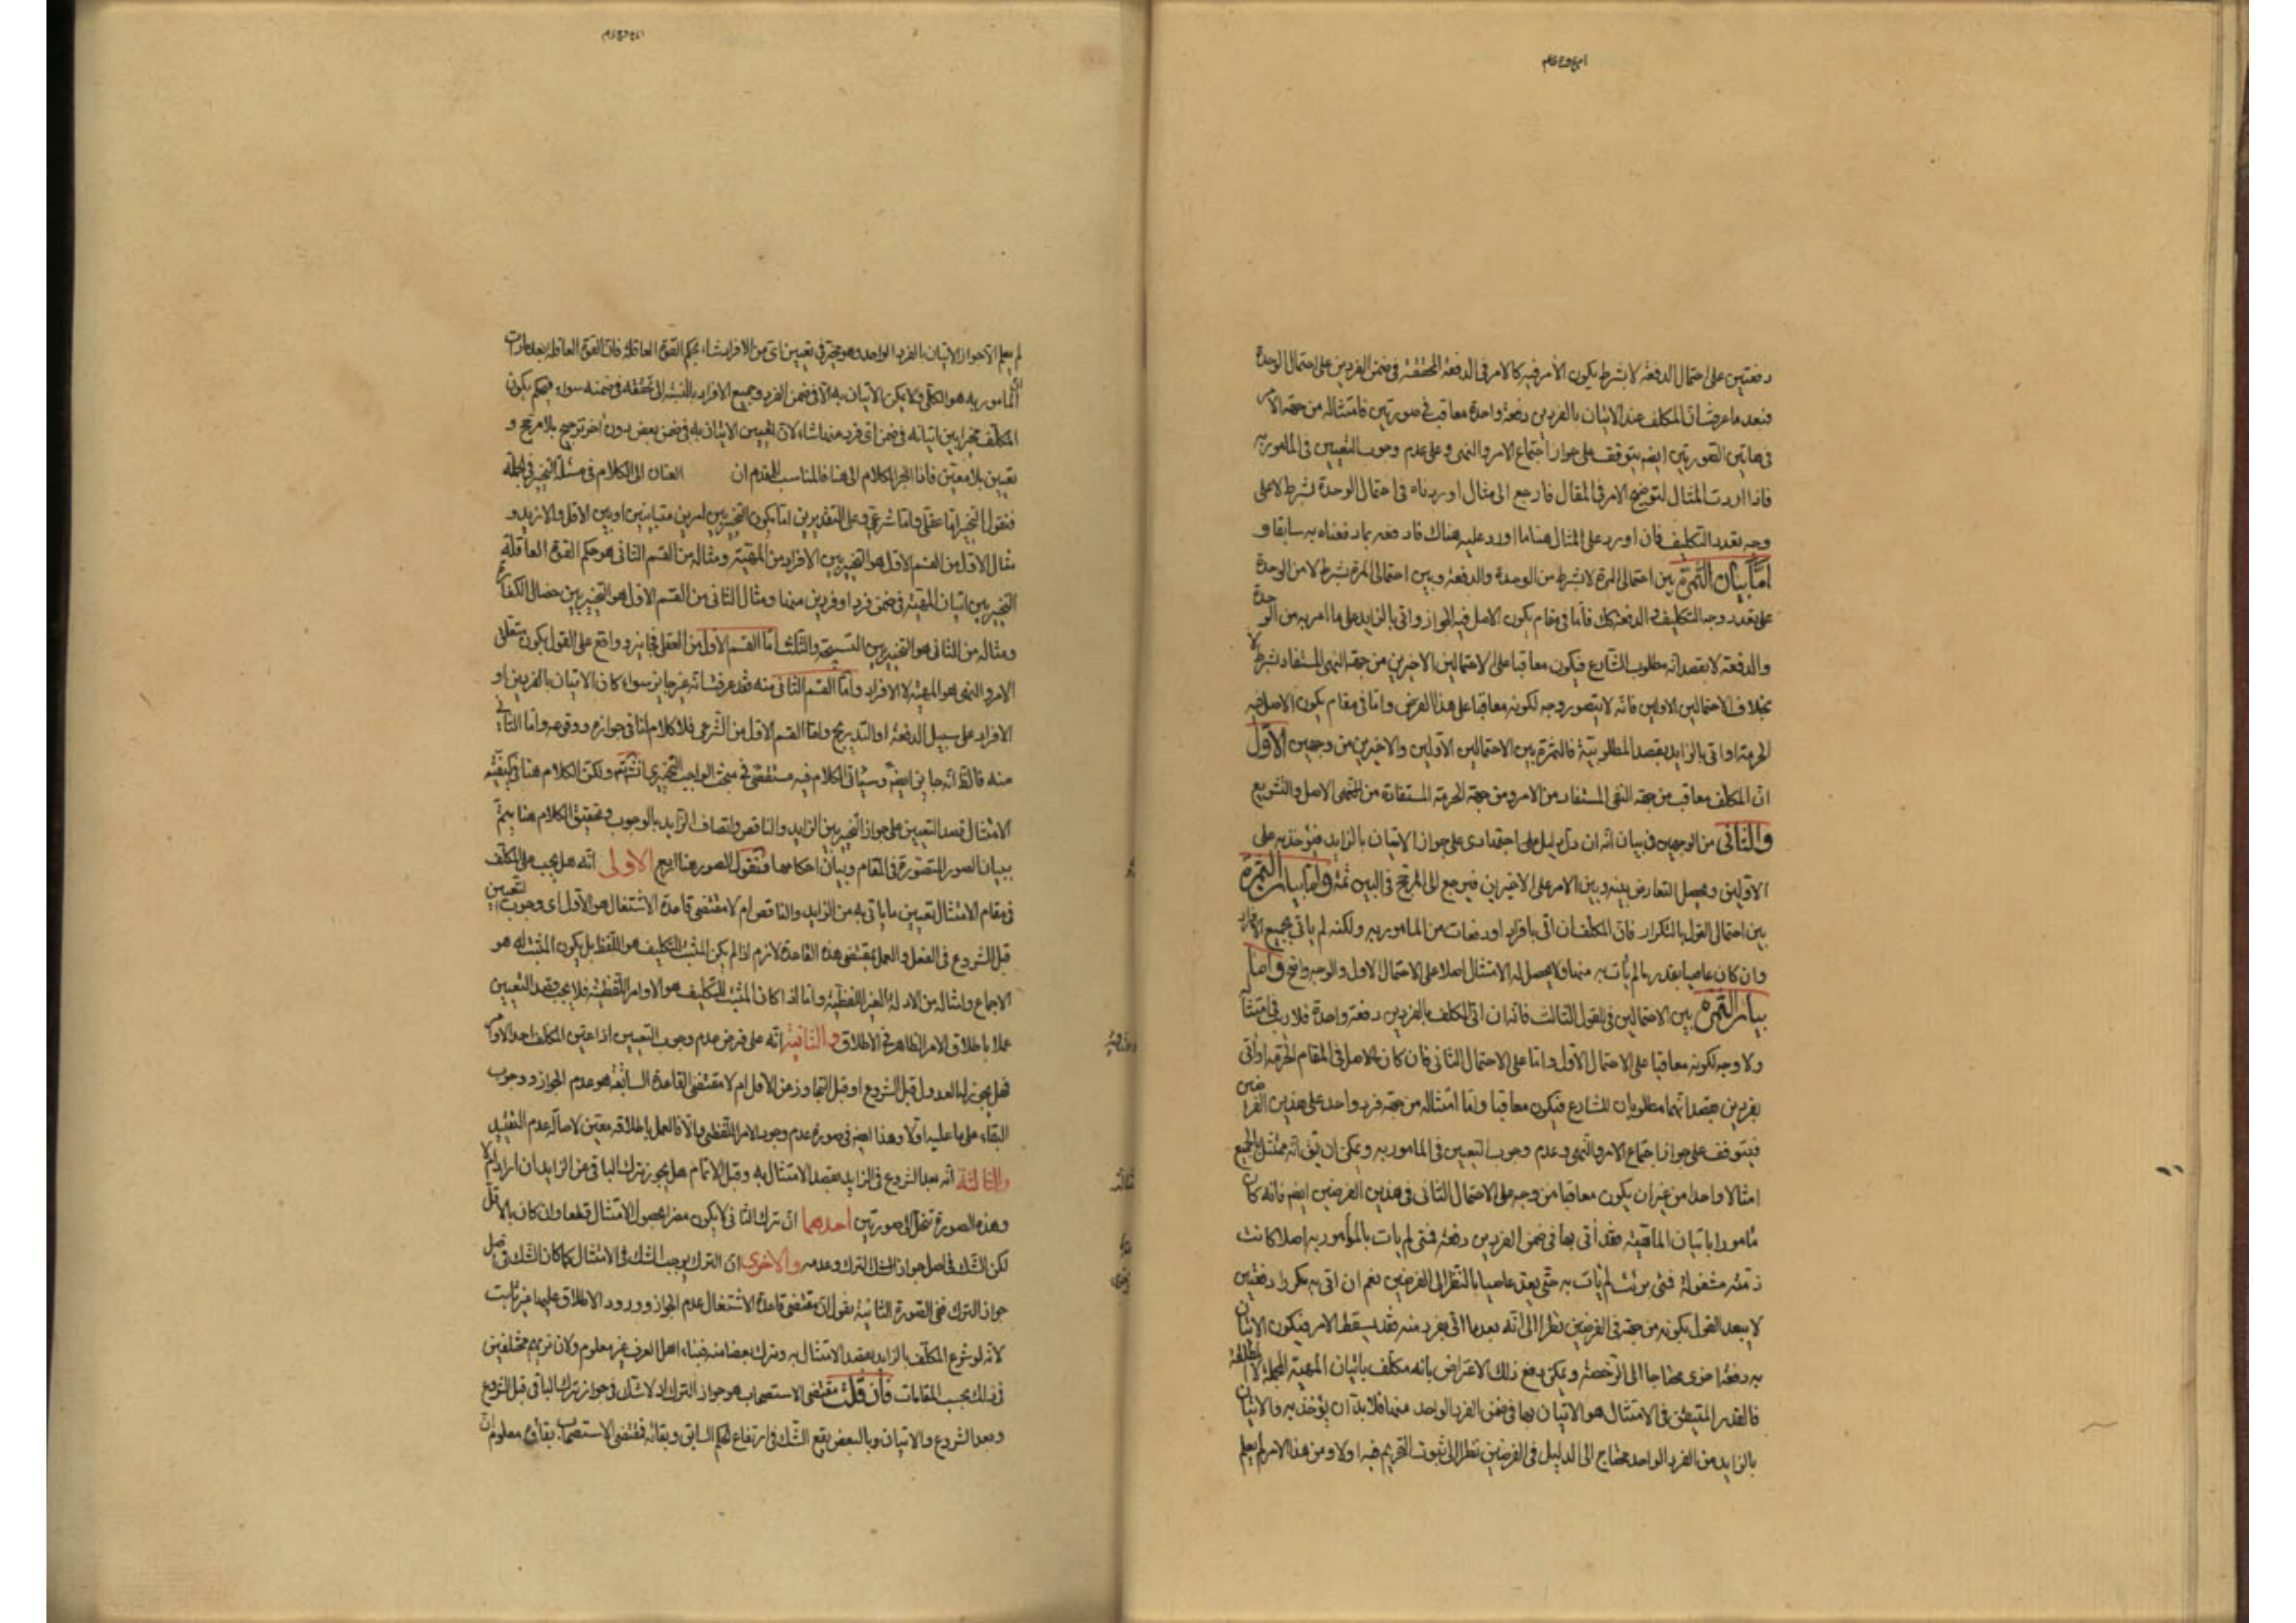 دفعتين على احتمال الدفعة لا بشرط يكون الأمر فيه كالامر فى الدفعة المحققة فى ضمن الفردين على احتمال الوحدة
فبعد ما عرفت ان المكلف عند الاتيان بالفردين دفعة واحدة معاقب فى صورتين فامتثاله من جهة الامر
فى هاتين الصورتين ايضا يتوقف على جواز اجتماع الامر والنهى وعلى عدم وجوب التعيين فى المامور به
فاذا اردت المثال لتوضيح الامر فى المقال فارجع الى مثال اوردناه فى احتمال الوحدة بشرط لا على
وجه تعدد التكليف فان اورد على المثال هنا ما اورد عليه هناك فادفعه بما دفعناه به سابقا و
امّا بيان الثمرة بين احتمالى المرة لا بشرط من الوحدة والدفعة وبين احتمالى المرة بشرط لا من الوحدة
على تعدد وجه التكليف والدفعة كك فأما فى مقام يكون الاصل فيه الجواز واتى بالزايد على ما امر به من الوحدة
والدفعة لا بقصد انه مطلوب الشارع فيكون معاقبا على الاحتمالين الاخيرين من جهة النهى المستفاد بشرط لا
بخلاف الاحتمالين الاولين فانه لا يتصور وجه لكونه معاقبا على هذا الفرض واما فى مقام يكون الاصل فيه
الحرمة او اتى بالزايد بقصد المطلوبية فالثمرة بين الاحتمالين الأولين والاخيرين من وجهين الاول
ان المكلف معاقب من جهة النهى المستفاد من الامر ومن جهة الحرمة المستفادة من الاصل والتشريع
والثانى من الوجهين فى بيان أنه ان دل دليل على اجتهادى على جواز الاتيان بالزايد فيؤخذ به على
الاولين ويحصل التعارض بينه وبين الامر على الاخيرين فيرجع الى المرجح فى البين ثمة وامّا بيان الثمرة
بين احتمالى القول بالتكرار فان المكلف ان اتى بافراد او دفعات من المامور به ولكنه لم يأتى بجميع الافراد
وان كان عاصيا بقدر ما لم يأت به منها ولا يحصل له الامتثال اصلا على الاحتمال الاول والوجه واضح وامّا
بيان الثمرة بين الاحتمالين فى القول الثالث فانه ان اتى المكلف بالفردين دفعة واحدة فلا ريب فى امتثاله
ولا وجه لكونه معاقبا على الاحتمال الأول واما على الاحتمال الثانى فان كان الاصل فى المقام الحرمة او أتى
بفردين بقصد انهما مطلوبان للشارع فيكون معاقبا وامّا امتثاله من جهة فرد واحد على هذين الفرضين
فيتوقف على جواز اجتماع الامر والنهى وعدم وجوب التعيين فى المامور به ويمكن ان يق انه ممتثل بالجميع
امتثالا واحدا من غير ان يكون معاقبا من وجه على الاحتمال الثانى فى هذين الفرضين ايضا فانه كان
مأمورا باتيان الماهية فقد أتى بها فى ضمن الفردين دفعة فمتى لم يات بالمامور به اصلا كانت
ذمته مشغولة فمتى لم يأت به حتى يعد عاصيا بالنظر الى الفرضين نعم ان اتى به مكررا دفعتين
لا يبعد القول بكونه من جهة فى الفرضين نظرا الى أنه بعد ما اتى بفرد منه فقد يسقط الامر فيكون الاتيان
به دفعة اخرى محتاجا الى الرخصة ويمكن دفع ذلك الاعتراض بانه مكلف باتيان المهية المجملة لا المطلقة
فالقدر المتيقن فى الامتثال هو الاتيان بها فى ضمن الفرد الواحد منها فلا بد أن يؤخذ به والاتيان
بالزايد من الفرد الواحد محتاج الى الدليل فى الفرضين نظرا الى ثبوت التحريم فيه اولا ومن هذا الامر لم يعلم
لم يعلم الا جواز الاتيان بالفرد الواحد وهو مخير فى تعيين اى من الافراد شاء بحكم القوة العاقلة فان القوة العاقلة بعد ما رات
أن المامور به هو الكلى ولا يمكن الاتيان به الا فى ضمن الفرد وجميع الافراد بالنسبة الى تحققه فى ضمنه سواء فيحكم بكون
المكلف مخيرا بين اتيانه فى ضمن اى فرد منها شاء لان تعيين الاتيان به فى ضمن بعض دون آخر ترجيح بلا مرجح و
تعيين بلا معين فاذا انجر الكلام الى هنا فالمناسب للمقام ان العنان الى الكلام فى مسئلة التخيير فى الجملة
فنقول التخيير اما عقلى واما شرعى وعلى التقديرين اما يكون التخيير بين امرين متباينين او بين الاقل والازيد و
مثال الاول من القسم الاول هو التخيير بين الافراد من المهية ومثاله من القسم الثانى هو حكم القوة العاقلة
التخيير بين اتيان المهية فى ضمن فرد او فردين منها ومثال الثانى من القسم الاول هو التخيير بين خصال الكفارة
ومثاله من الثانى هو التخيير بين التسبيحة والثلث امّا القسم الاول من العقلى فجايز وواقع على القول بكون متعلق
الامر والنهى هو المهية لا الافراد وامّا القسم الثانى منه فقد عرفت انه غير جايز سواء كان الاتيان بالفردين او
الافراد على سبيل الدفعة او التدريج واما القسم الاول من الشرعى فلا كلام لنا فى جوازه ووقوعه واما الثانى
منه فالظ انه جايز ايضا وسياتى الكلام فيه مستقصى فى مبحث الواجب التخييرى انشاء الله ولكن الكلام هنا فى كيفية
الامتثال وقصد التعيين على جواز التخيير بين الزايد والناقص واتصاف الزايد بالوجوب وتحقيق الكلام هنا يتم
ببيان الصور المتصورة فى المقام وبيان احكامها فنقول الصور هنا اربع الاولى انه هل يجب على المكلف
فى مقام الامتثال تعيين ما ياتى به من الزايد والناقص ام لا مقتضى قاعدة الاشتغال هو الأول اى وجوب التعيين
قبل الشروع فى الفعل والعمل بمقتضى هذه القاعدة لازم اذا لم يكن المثبت للتكليف هو اللفظ بل يكون المثبت له هو
الاجماع وامثاله من الادلة الغير اللفظية واما اذا كان المثبت للتكليف هو الاوامر اللفظية فلا يجب قصد التعيين
عملا باطلاق الامر الظاهر فى الاطلاق والثانية انه على فرض عدم وجوب التعيين اذا عين المكلف احد الاوامر
فهل يجوز له العدول قبل الشروع او قبل التجاوز عن الاقل ام لا مقتضى القاعدة السابقة هو عدم الجواز ووجوب
البقاء على ما عليه اولا وهذا ايضا فى صورة عدم وجود الامر اللفظى والا فالعمل باطلاقه معين لاصالة عدم التقييد
والثالثة أنه بعد الشروع فى الزايد بقصد الامتثال به وقبل الاتمام هل يجوز ترك الباقى عن الزايد ان اراد ام لا
وهذه الصورة تنحل الى صورتين احدهما ان ترك الباقى لا يكون مضرا بحصول الامتثال قطعا وان كان بالاقل
لكن الشك فى اصل جواز الترك وعدمه والاخرى ان الترك يوجب الشك فى الامتثال كما كان الشك فى اصل
جواز الترك ففى الصورة الثانية نقول ان مقتضى قاعدة الاشتغال عدم الجواز وورود الاطلاق عليها غير ثابت
لانه لو شرع المكلف بالزايد بقصد الامتثال به وترك بعضا منه فبناء اهل العرف غير معلوم ولان نريهم مختلفين
فى ذلك بحسب المقامات فان قلت مقتضى الاستصحاب هو جواز الترك اذ لا شك فى جواز ترك الباقى قبل الشروع
وبعد الشروع والاتيان وبالبعض يقع الشك فى ارتفاع الحكم السابق وبقائه فمقتضى الاستصحاب بقاؤه معلوم ان